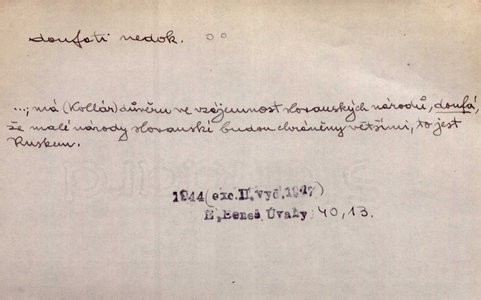 doufati nedok.
...; má (Kollár) důvěru ve vzájemnost slovanských národů, doufá,
že malé národy slovanské budou chráněny většími, to jest
Ruskem.
1944 (exc. II. vyd. 1947)
E. Beneš Úvahy 40, 13.